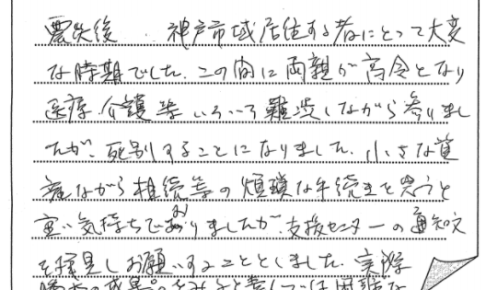 震災後 神戸市域居住する者にとって大変
な時期でした。この間に両親が高令となり
医療 介護等 いろいろ難渋しながら参りまし
たが、死別することになりました。小さな遺
産ながら相続等の煩瑣な手続きを思うと
重い気持ちでおりましたが、支援センターの通知文
を拝見しお願いすることとしました。実際